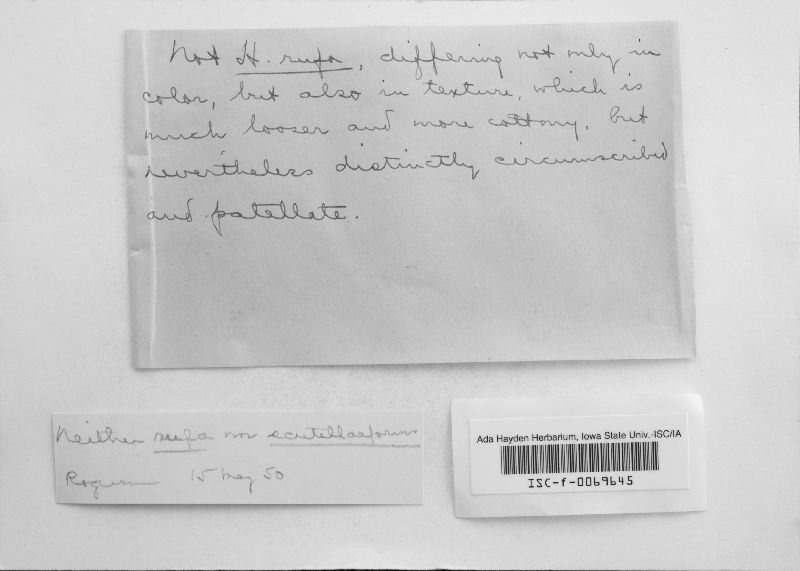 Not H. rufa, differing not only in
color, but also in texture, which is
much looser and more cottony, but
nevertheless distinctly circumscribed
and patellate.
Neither rufa nor scutellaeformis
Rogerson 15 May 50
Ada Hayden Herbarium, Iowa State Univ.-ISC/IA
ISC-f-0069645